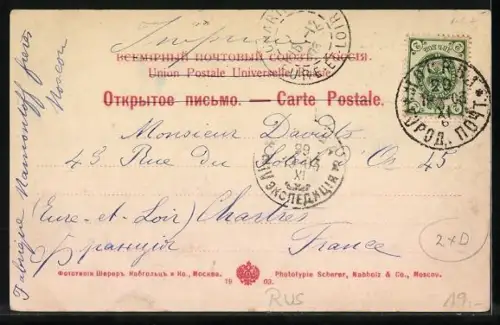 Imprimé
ВСЕМІРНЫЙ ПОЧТОВЫЙ СОЮЗЪ. РОССІЯ.
Union Postale Universelle. Russie.
Открытое письмо. — Carte Postale.
Monsieur Davidts
43 Rue du Soleil d'Or 45
(Eure-et-Loir) Chartres
Франція France
Fabrique Mamontoff frères
Moscou
ГОРОД. ПОЧТ.
ЭКСПЕДИЦІЯ
Фототипія Шереръ, Набгольцъ и Ко., Москва.
19 03.
Phototypie Scherer, Nabholz & Co., Moscou.
2xD
RUS
19.-